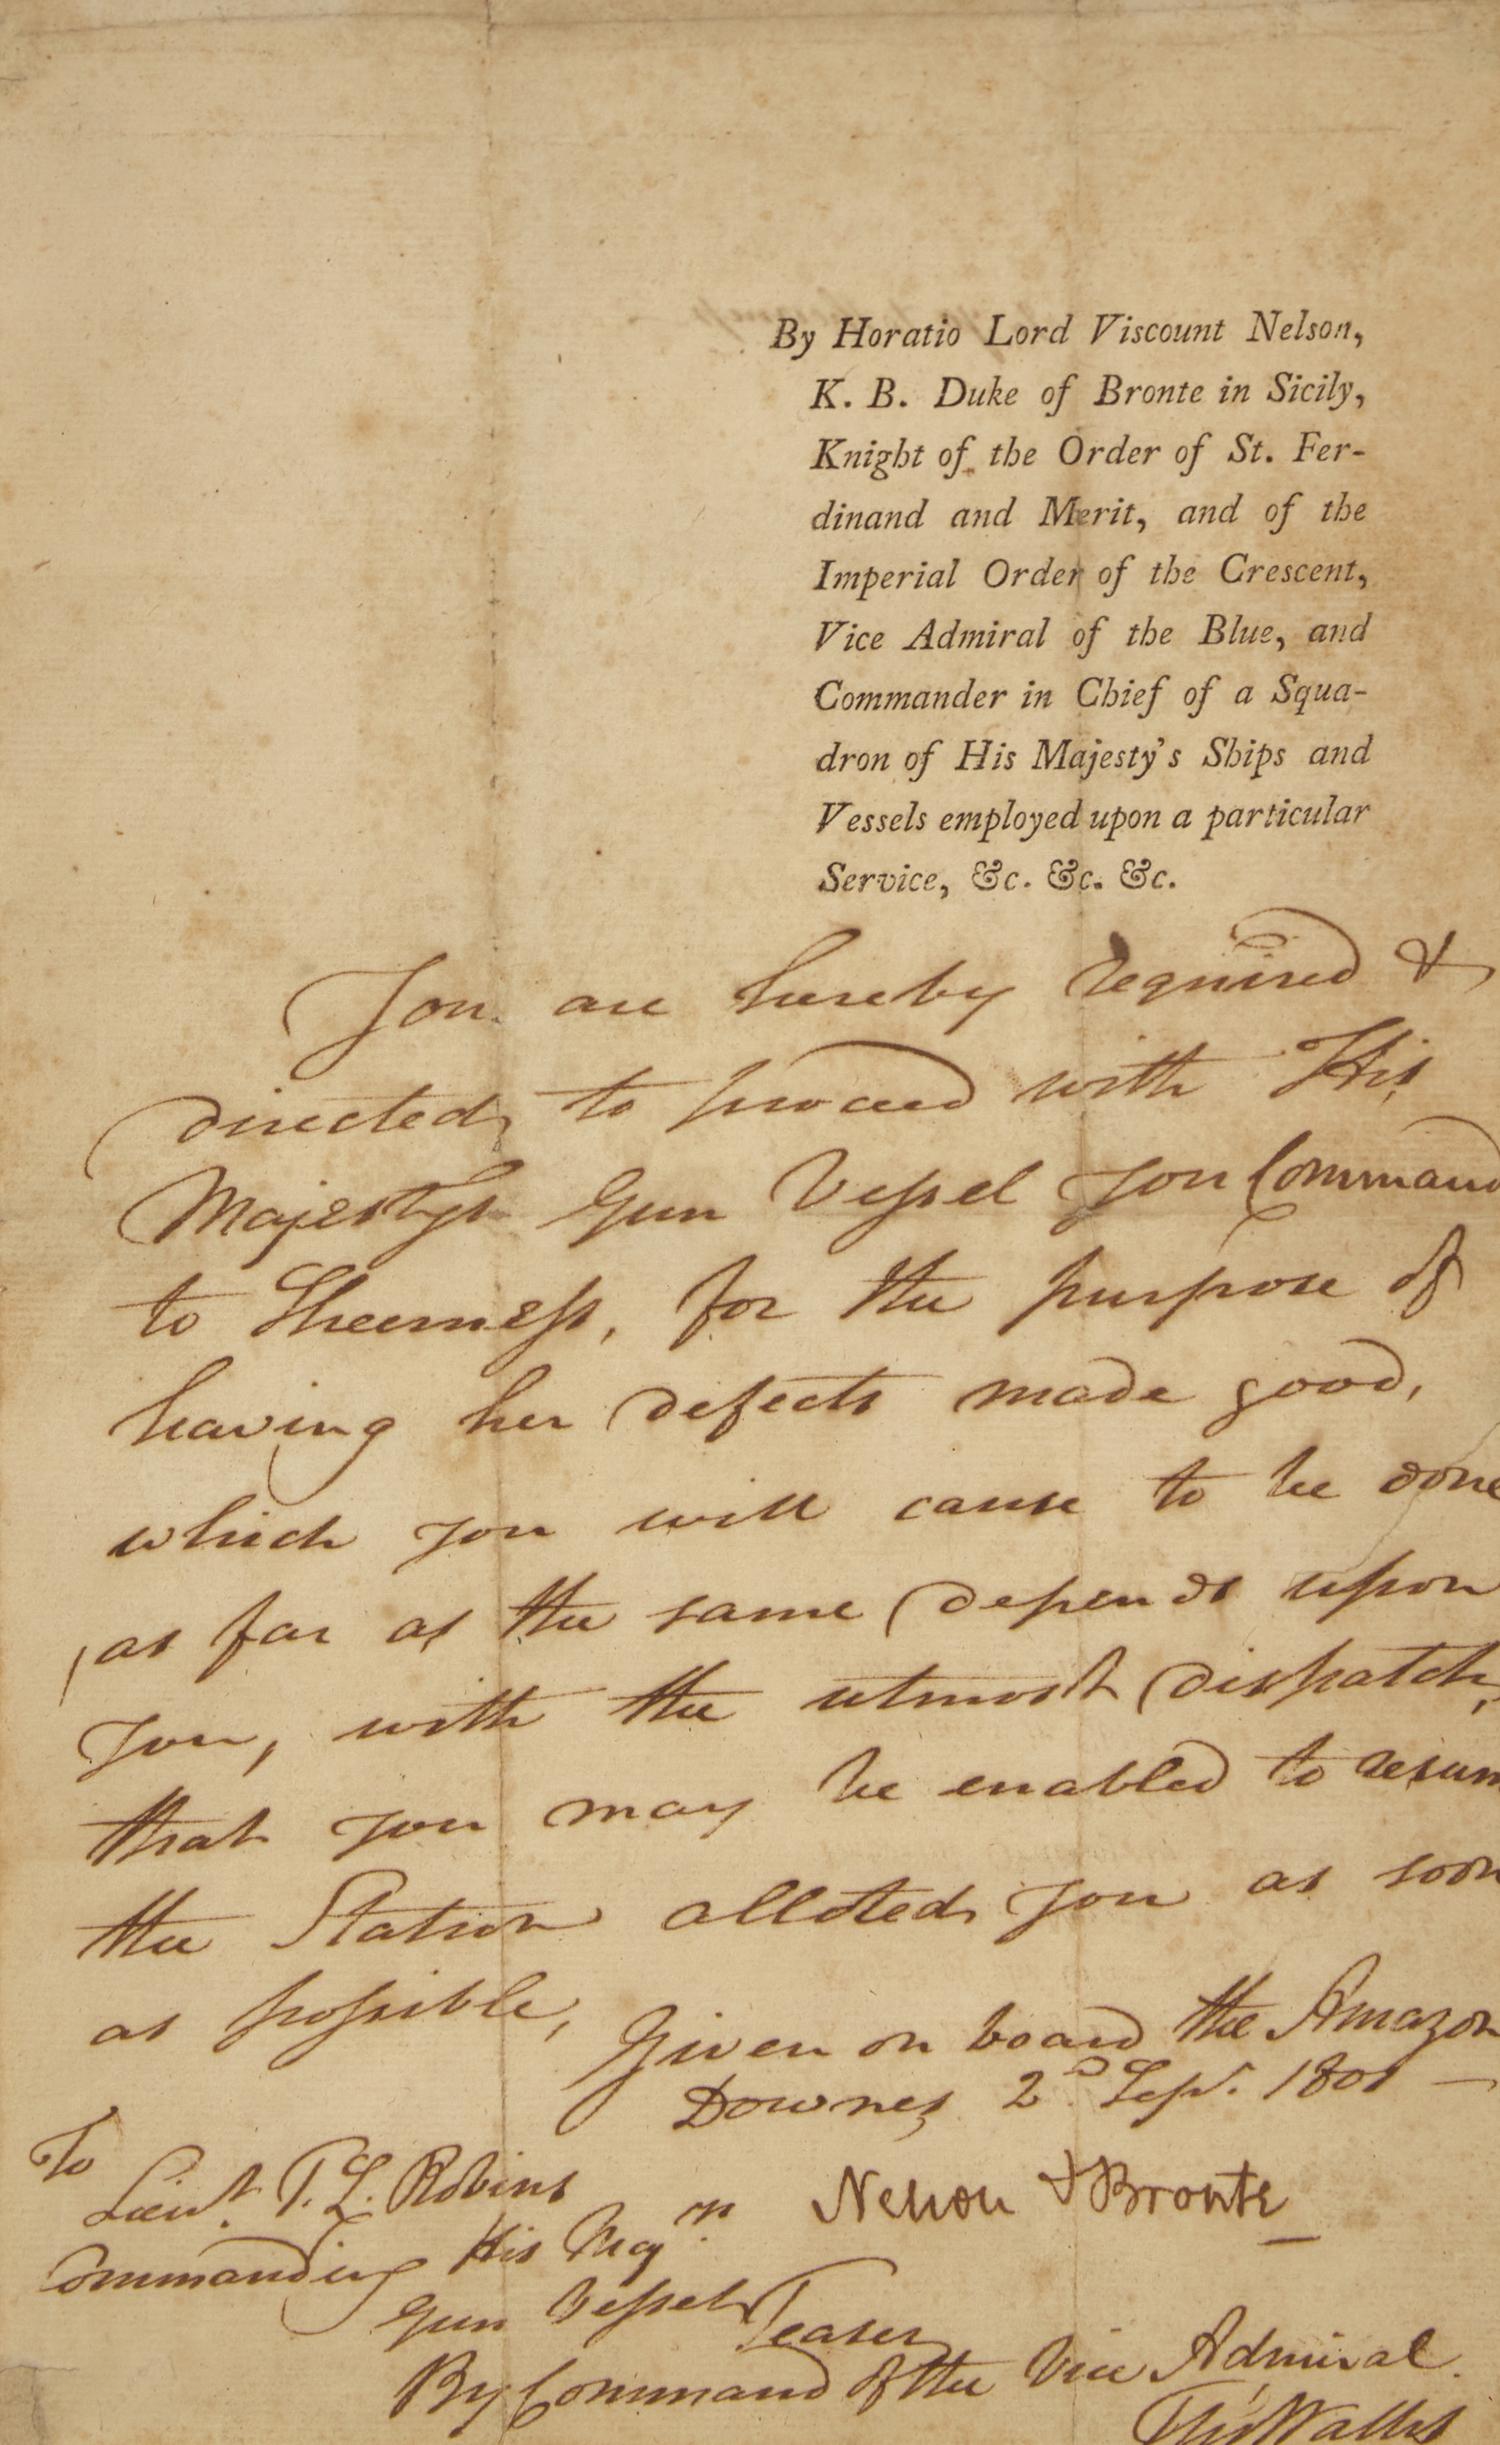 By Horatio Lord Viscount Nelson,
K. B. Duke of Bronte in Sicily,
Knight of the Order of St. Fer-
dinand and Merit, and of the
Imperial Order of the Crescent,
Vice Admiral of the Blue, and
Commander in Chief of a Squa-
dron of His Majesty's Ships and
Vessels employed upon a particular
Service, &c. &c. &c.
You are hereby required &
directed to proceed with His
Majesty's Gun Vessel you Command
to Sheerness, for the purpose of
having her defects made good,
which you will cause to be done
as far as the same depends upon
you, with the utmost dispatch,
that you may be enabled to resum
the Station alloted you as soon
as possible,
Given on board the Amazon
Downes 2d Sepr. 1801
To
Lieut. T. L. Robins
Commanding His Maj'ys
Gun Vessel Teaser
Nelson & Bronte
By Command of the Vice Admiral.
Thos Wallis